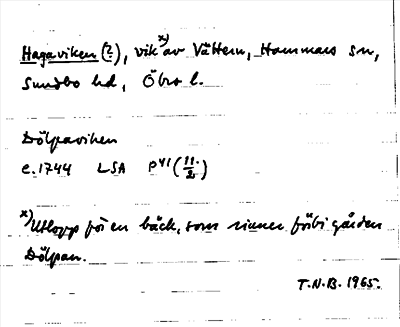 Hagaviken (?), vik x) av Vättern, Hammars sn,
Sundbo hd, Öbro l.
Dölpaviken
c. 1744 LSA P41 (11/2)
x) Utlopp för en bäck, som rinner förbi gården
Dölpan.
T.N.B. 1965.